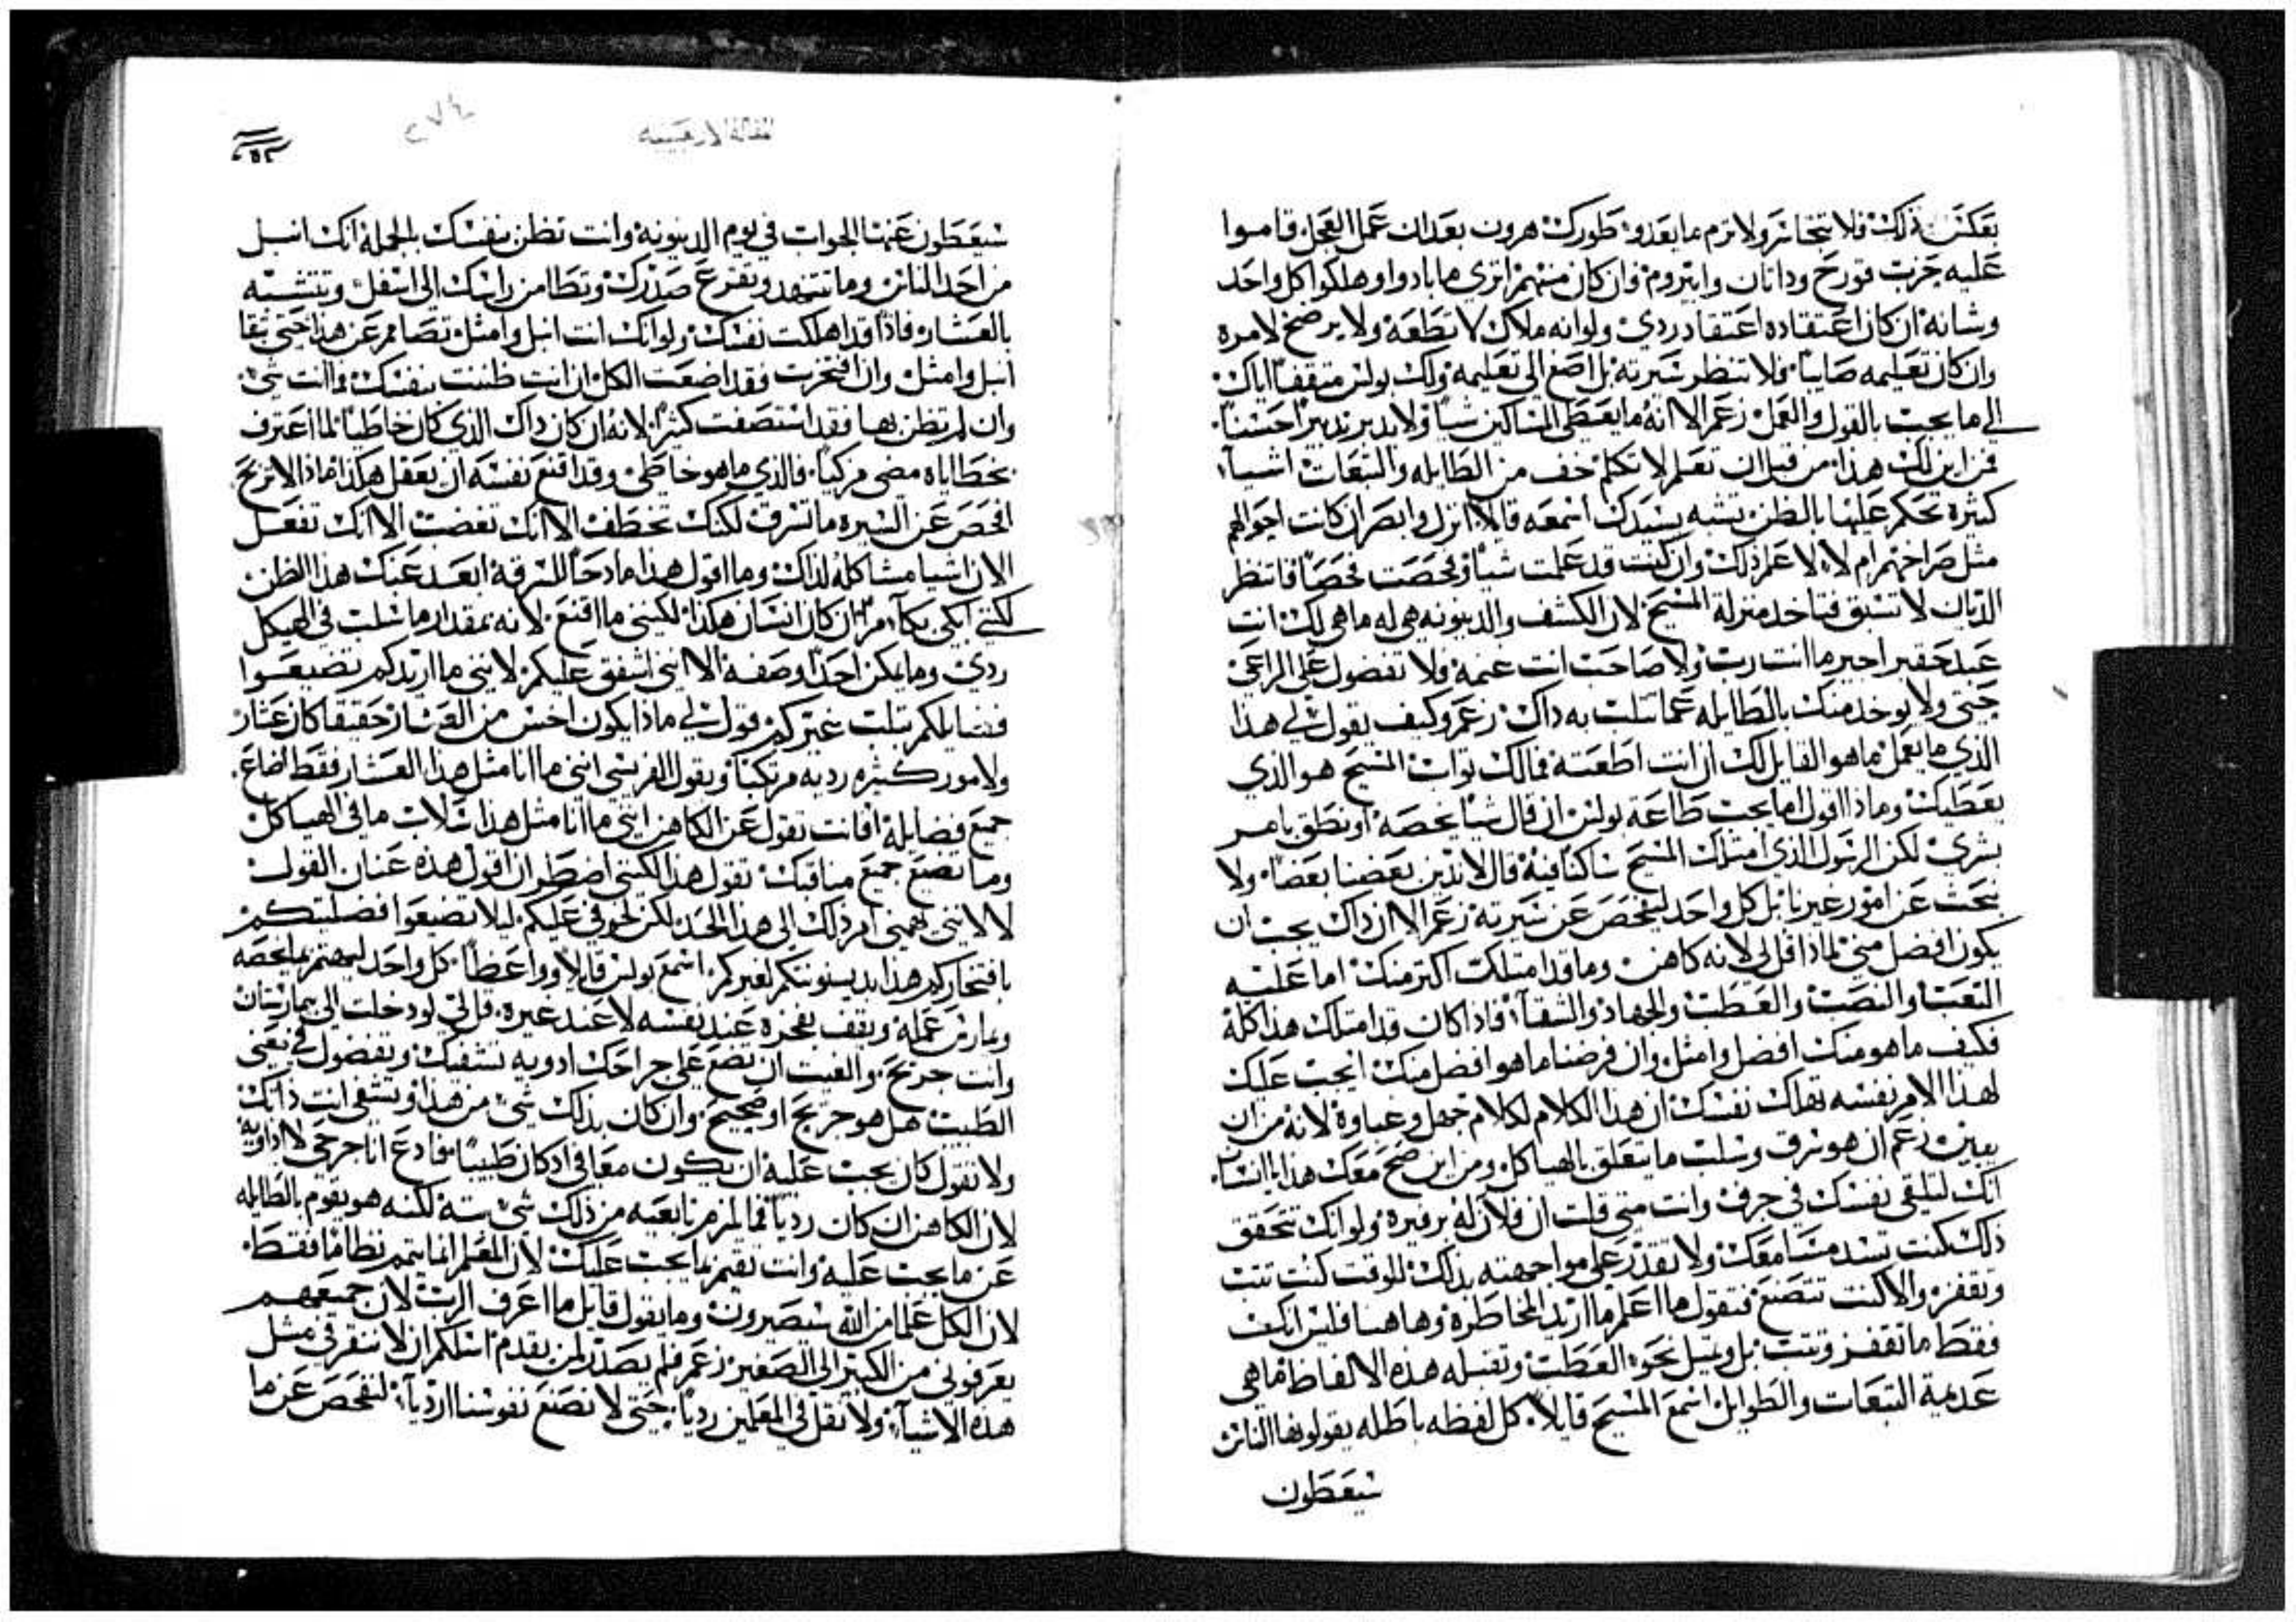 بعكس ذلك فلا تتجاسر ولا ترم ما يعدو طورك هرون بعد ان عمل العجل قاموا
عليه حزب قورح وداتان وابيروم فان كان منهم اتري ما بادوا وهلكوا كل واحد
وشانه ان كان اعتقاده اعتقاد ردي ولو انه ملاك لا تطعه ولا يرضخ لامره
وان كان تعليمه صايباً فلا تنظر سيرته بل اصغ الي تعليمه ولك بولس متقفاً اياك
الي ما يجب بالقول والعمل زعم الا انه ما يعطي المساكين شياً ولا يدبر تدبيراً حسناً
فمن اين لك هذا من قبل ان تعلم لا تكلم خف من الطايله والتبعات اشيآ
كثيرة تحكم عليها بالظن تشبه بسيدك اسمعه قايلاً انزل وابصر ان كانت احوالهم
مثل صراخهم ام لا لاعلم ذلك وان كنت قد علمت شياً وفحصت فحصاً فانتظر
الديان لا تسبق فتاخد منزلة المسيح لان الكشف والدينونه هي له ما هي لك انت
عبد حقير اجير ما انت رب ولا صاحب انت غنمه فلا تفضول علي الراعي
حتي ولا يوخد منك بالطايله عما تثلب به داك زعم وكيف يقول لي هذا
الذي ما يعمل ما هو القايل لك ان انت اطعته فمالك ثواب المسيح هو الذي
يعطيك وماذا اقول اما يجب طاعة بولس ان قال شيا يخصه او نطق بامر
بشري لكن الرسول الذي امتلك المسيح ساكنا فيه قال لا ندين بعضنا بعضاً ولا
نبحث عن امور غيرنا بل كل واحد ليفحص عن سيرته زعم الا ان داك يجب ان
يكون افضل مني لماذا قل لي لانه كاهن وما قد امتلك اكتر منك اما عليه
التعب والنصب والعطب والجهاد والشقآ فاذا كان قد امتلك هذا كله
فكيف ما هو منك افضل وامثل وان فرضنا ما هو افضل منك ايجب عليك
لهذا الامر نفسه تهلك نفسك ان هذا الكلام لكلام جهل وغباوة لانه من ان
يبين زعم ان هو سرق وسلب ما يتعلق بالهياكل ومن اين صح معك هذا يا انسان
انك لتلقي نفسك في جرف وانت متي قلت ان فلان له برفيرة ولو انك تتحقق
ذلك كنت تسد مسامعك ولا تقدر علي مواجهته بذلك للوقت كنت تثب
وتقفز والا كنت تتصنع فتقول ما اعلم ما اريد المخاطرة وها هنا فليس انك
فقط ما تقفز وتثب بل وتميل نحوه العطب وتقتبله هذه الالفاظ ما هي
عديمة التبعات والطوايل اسمع المسيح قايلاً كل لفظه باطله يقولونها الناس
سيعطون
المقالة الاربعينيه
٢٧٤
سيعطون عنها الجواب في يوم الدينونه وانت تظن بنفسك بالجمله انك انبل
من احد الناس وما تتنهد وتقرع صدرك وتطامن راسك الي اسفل وتتشبه
بالعشار فاذاً قد اهلكت نفسك ولو انك انت انبل وامثل تصامر عن هذا حتي تبقا
انبل وامثل وان افتخرت فقد اضعت الكل ان انت ظننت بنفسك فما انت شي
وان لم تظن بها فقد استصفت كثيراً لانه ان كان داك الذي كان خاطياً لما اعترف
بخطاياه مضي مزكياً فالذي ما هو خاطي وقد اقنع نفسه ان يعقل هكذا ماذا لا تربح
افحص عن السيره ما تسرق لكنك تخطف الا انك تغضب الا انك تفعل
الان اشيا مشاكلة لذلك وما اقول هذا مادحاً للسرقة ابعد عنك هذا الظن
لكني ابكي بكآ مراً ان كان انسان هكذا لكنني ما اقنع لانه بمقدار ما سلب في الهيكل
ردي وما يمكن احداً وصفه الا انني اشفق عليكم لانني ما اريدكم تضيعوا
فضايلكم بثلب غيركم قول لي ماذا يكون اخس من العشار حقيقا كان عشار
ولامور كثيره رديه مرتكباً ويقول الفريسي انني ما انا مثل هذا العشار فقط اضاع
جميع فضايله افانت تقول عن الكاهن انني ما انا مثل هذا سلاب ما في الهياكل
وما تضيع جميع مناقبك تقول هذا لكنني اضطر ان اقول هذه عنان القول
لا لانني يهمني امر ذلك الي هذا الحد لكن لخوفي عليكم ليلا تضيعوا فضليتكم
بافتخاركم هذا بدينونتكم لغيركم اسمع بولس قايلاً وواعظاً كل واحد ليهتم بما يخصه
ويمارس عمله ويقف بفخره عند نفسه لا عند غيره قل لي لو دخلت الي بيمارستان
وانت جريح والفيت ان تضع علي جراحك ادويه تشفيك وتفضول في تعني
الطبيب هل هو جريح او صحيح وان كان بذلك شي من هذا وتشفي انت ذاتك
ولا تقول كان يجب عليه ان يكون معافي ادكان طبيباً فادع انا جرحي لا اداويه
لان الكاهن ان كان ردياً فما لمزمرنا بعينه من ذلك شي بته لكنه هو يقوم بالطايله
عن ما يجب عليه وانت تقيم بما يجب عليك لان المعلم انما يتمم نظاما فقط
لان الكل علما من الله سيصيرون وما يقول قايل ما اعرف الرب لان جميعهم
يعرفوني من الكبير الي الصغير زعم فلم يصدر لمن يقدم اسلكم ان لا نقرفي مثل
هذه الاشيآ ولا نقل في المعلمين ردياً حتي لا نصنع نفوسنا ارديآ لنفحص عن ما